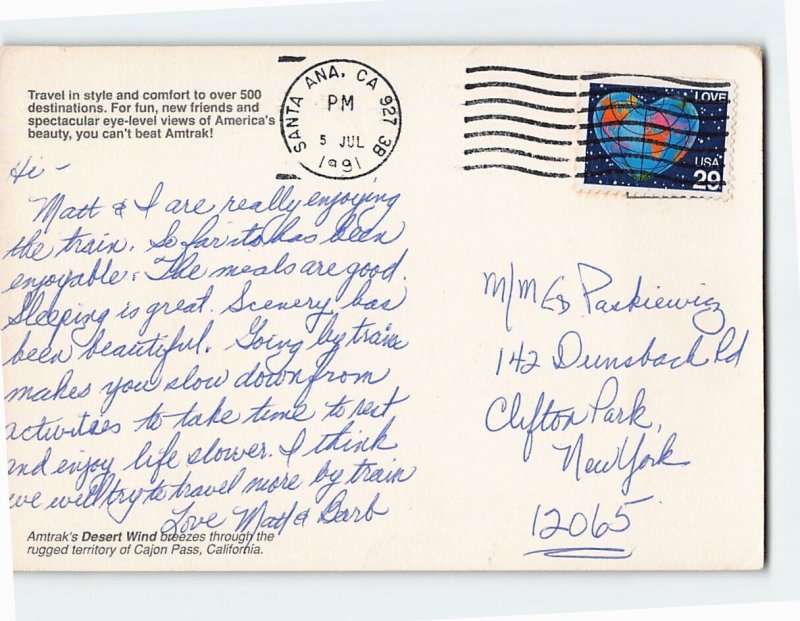 Travel in style and comfort to over 500
destinations. For fun, new friends and
spectacular eye-level views of America's
beauty, you can't beat Amtrak!
SANTA ANA, CA 927 3B
PM
5 JUL
1991
LOVE
USA
29
Hi -
Matt & I are really enjoying
the train. So far its has been
enjoyable. The meals are good.
Sleeping is great. Scenery has
been beautiful. Going by train
makes you slow down from
activities to take time to rest
and enjoy life slower. I think
we will try to travel more by train
Love Matt & Barb
Amtrak's Desert Wind breezes through the
rugged territory of Cajon Pass, California.
M/M Ed Paskiewicz
142 Dunsback Rd
Clifton Park,
New York
12065